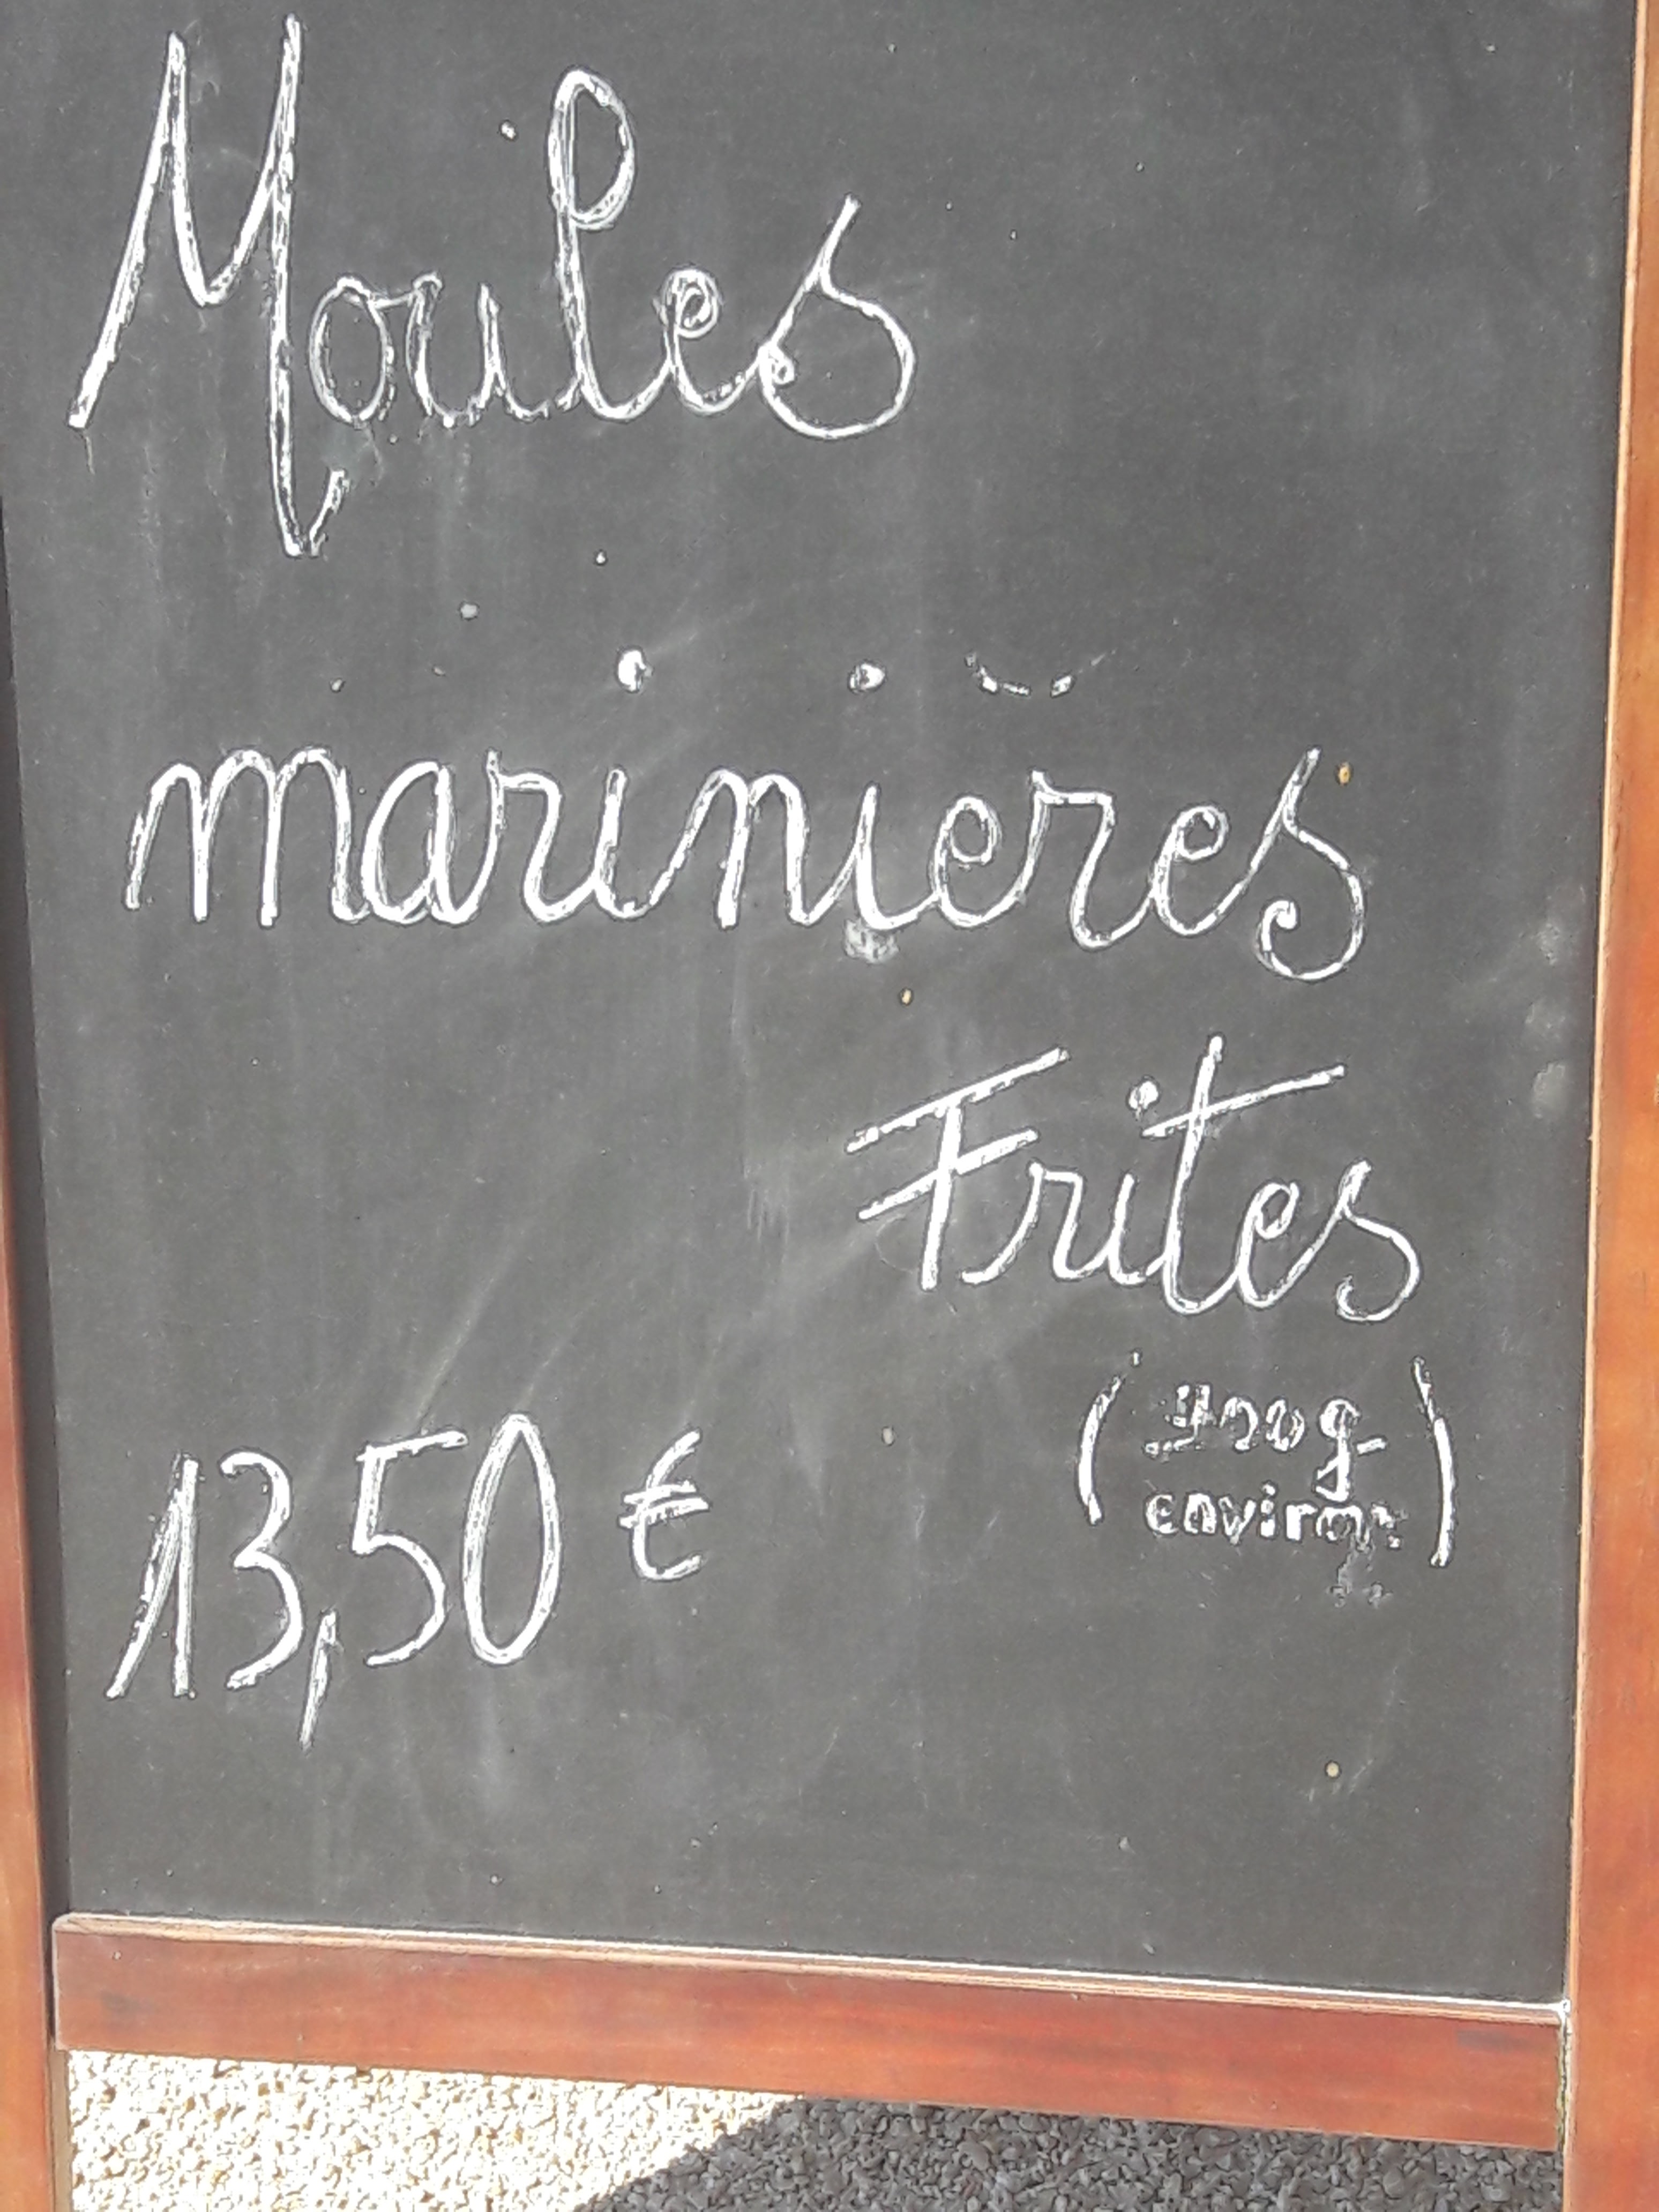 Moules
marinières
Frites
13,50 €
environ